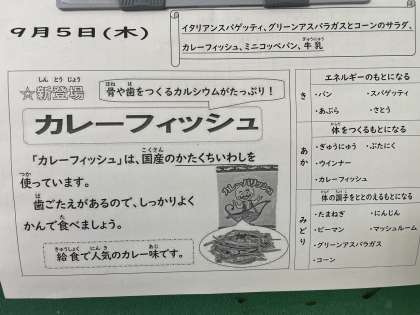 9月5日(木)
イタリアンスパゲッティ、グリーンアスパラガスとコーンのサラダ、
カレーフィッシュ、ミニコッペパン、牛乳
ぎゅうにゅう
しんとうじょう
☆新登場
ほね は
骨や歯をつくるカルシウムがたっぷり!
カレーフィッシュ
こくさん
「カレーフィッシュ」は、国産のかたくちいわしを
つか
使っています。
は
歯ごたえがあるので、しっかりよく
た
かんで食べましょう。
きゅうしょく にんき あじ
給食で人気のカレー味です。
カレーフィッシュ
き
エネルギーのもとになる
・パン ・スパゲッティ
・あぶら ・さとう
あか
体をつくるもとになる
・ぎゅうにゅう ・ぶたにく
・ウインナー
・カレーフィッシュ
みどり
体の調子をととのえるもとになる
・たまねぎ ・にんじん
・ピーマン ・マッシュルーム
・グリーンアスパラガス
・コーン